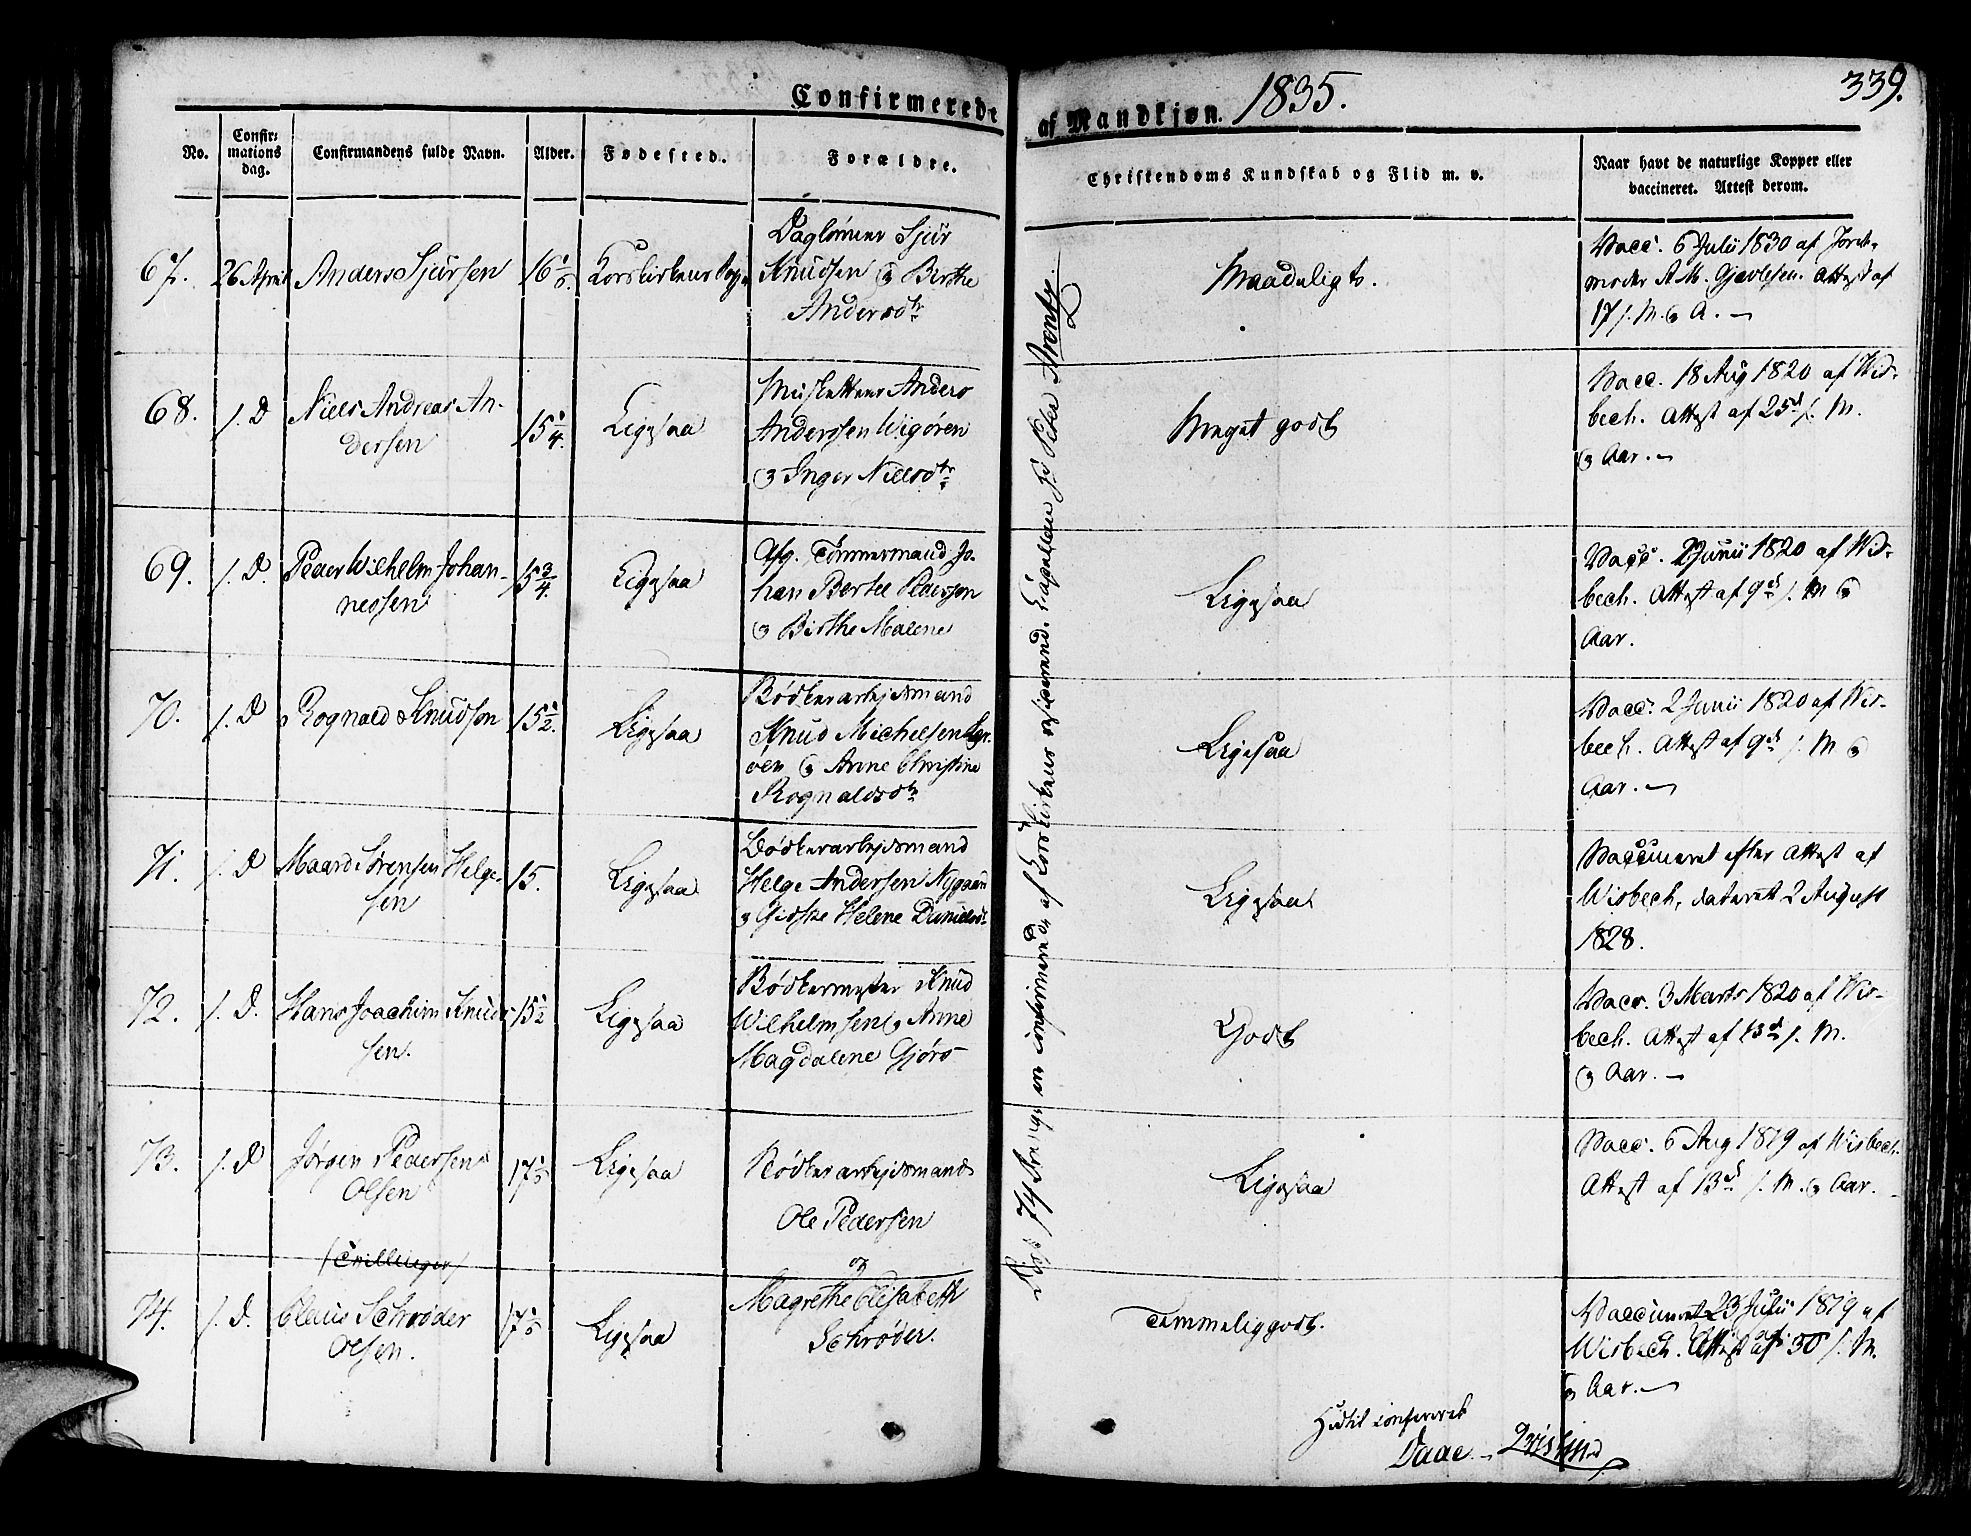 Confirmerede af Mandkjøn. 1835. 339.
No. Confirmations dag. Confirmandens fulde Navn. Alder. Fødested. Forældre. Christendoms Kundskab og Flid m. v. Naar havt de naturlige Kopper eller vaccineret. Attest derom.
67. 26 April Anders Sjursen 16 Korskirkens Sogn
Daglønner Sjur
Knudsen og Birthe
Andersdtr
Maadeligt.
Vacc. 6 Julii 1830 af Jorde-
moder A. M. Gjertsen. Attest af
17 s. M. og A. —
68. s. D Niels Andreas An-
dersen
15 1/4. Ligesaa
Musketteer Anders
Anderssen Wigøren
og Inger Nielsdtr
Meget godt
Vacc. 18 Aug 1820 af Wis-
bech. Attest af 25d s. M.
og Aar. —
69. s. D. Peder Wilhelm Johan-
nessen
15 3/4. Ligesaa
Afg. Tømmermand Jo-
han Bertel Pedersen
og Birthe Malene
Ligesaa
Vacc. 2 Junii 1820 af Wis-
bech. Attest af 9d s. M og
Aar.
70. s. D Rognald Knudsen 15 1/2. Ligesaa
Bødkerarbejdsmand
Knud Michelsen
og Anne Christine
Rognaldsdtr
Ligesaa
Vacc. 2 Junii 1820 af Wis-
bech. Attest af 9d s. M og
Aar. —
71. s. D Maard Sørensen Helge-
sen
15. Ligesaa
Bødkerarbejdsmand
Helge Andersen Nygaard
og Gidske Helene Danielsdtr
Ligesaa
Vaccineret efter Attest af
Wisbech, dateret 2 August
1828.
72. s. D. Hans Joachim Knud-
sen.
15 1/2 Ligesaa
Bødkermester Knud
Wilhelmsen og Anne
Magdalene Gjørs
Godt
Vacc. 3 Marts 1820 af Wis-
bech. Attest af 13d s. M.
og Aar. —
73. s. D Jørgen Pedersen
Olsen
(Tvillinger)
17 Ligesaa
Bødkerarbejdsmand
Ole Pedersen
og
Ligesaa
Vacc. 6 Aug 1819 af Wisbech.
Attest af 13d s. M. og Aar. —
74. s. D. Claus Schrøder
Olsen.
17 Ligesaa
Magrethe Elisabeth
Schrøder.
Temmelig godt.
Vaccineret 23 Julii 1819 af
Wisbech. Attest af 30 s. M.
og Aar. —
Disse 74 Drenge ere confirmerede af Korskirkens residerende Capellan Hr Peder
Hidtil confereret
Daae. — Qvislind